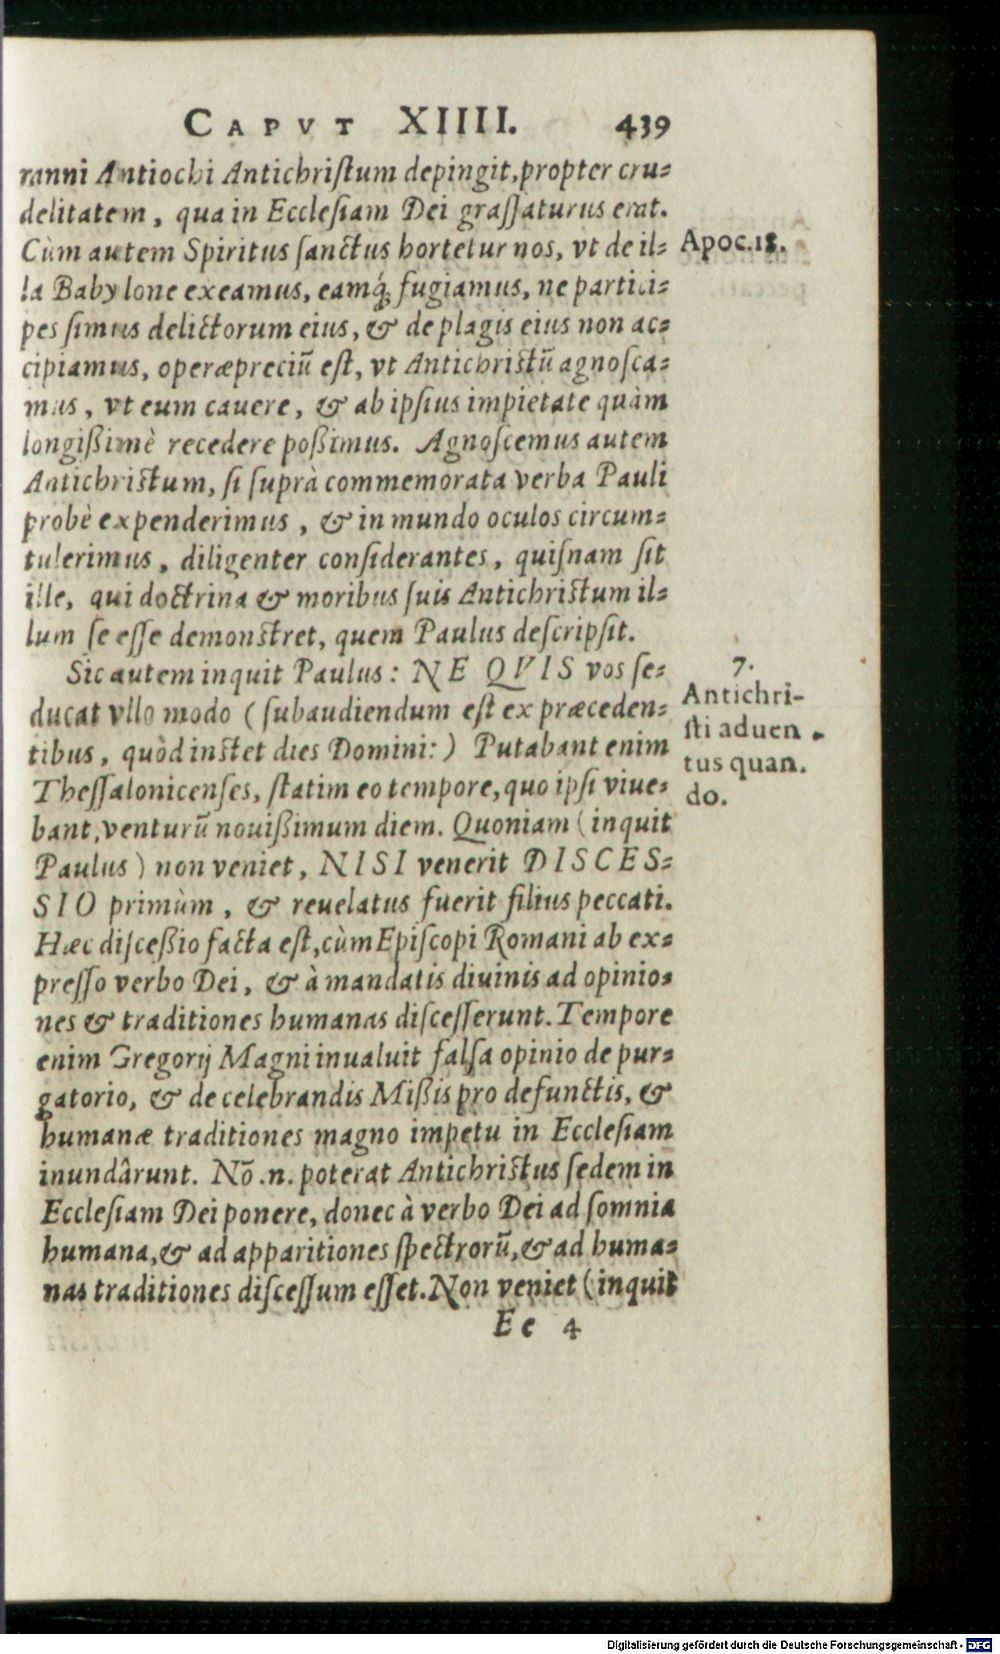 CAPVT XIIII. 439
ranni Antiochi Antichriſtum depingit, propter cru⸗
delitatem, qua in Eccleſiam Dei graſſaturus erat.
Cùm autem Spiritus ſanctus hortetur nos, vt de il⸗
Apoc.18.
la Babylone exeamus, eamq́ꝫ fugiamus, ne partici⸗
pes ſimus delictorum eius, & de plagis eius non ac⸗
cipiamus, operæpreciũ eſt, vt Antichriſtũ agnoſca⸗
mus, vt eum cauere, & ab ipſius impietate quàm
longißimè recedere poßimus. Agnoſcemus autem
Antichriſtum, ſi ſuprà commemorata verba Pauli
probè expenderimus, & in mundo oculos circum⸗
tulerimus, diligenter conſiderantes, quiſnam ſit
ille, qui doctrina & moribus ſuis Antichriſtum il⸗
lum ſe eſſe demonſtret, quem Paulus deſcripſit.
Sic autem inquit Paulus: NE QVIS vos ſe⸗
ducat vllo modo (ſubaudiendum eſt ex præceden⸗
tibus, quòd inſtet dies Domini:) Putabant enim
Theſſalonicenſes, ſtatim eo tempore, quo ipſi viue⸗
bant, venturũ nouißimum diem. Quoniam (inquit
Paulus) non veniet, NISI venerit DISCES⸗
SIO primùm, & reuelatus fuerit filius peccati.
7.
Antichri-
ſti aduen
tus quan.
do.
Hæc diſceßio facta eſt, cùm Epiſcopi Romani ab ex⸗
preſſo verbo Dei, & à mandatis diuinis ad opinio⸗
nes & traditiones humanas diſceſſerunt. Tempore
enim Gregorij Magni inualuit falſa opinio de pur⸗
gatorio, & de celebrandis Mißis pro defunctis, &
humanæ traditiones magno impetu in Eccleſiam
inundârunt. Nõ .n. poterat Antichriſtus ſedem in
Eccleſiam Dei ponere, donec à verbo Dei ad ſomnia
humana, & ad apparitiones ſpectrorũ, & ad huma⸗
nas traditiones diſceſſum eſſet. Non veniet (inquit
Ee 4
Digitalisierung gefördert durch die Deutsche Forschungsgemeinschaft - DFG